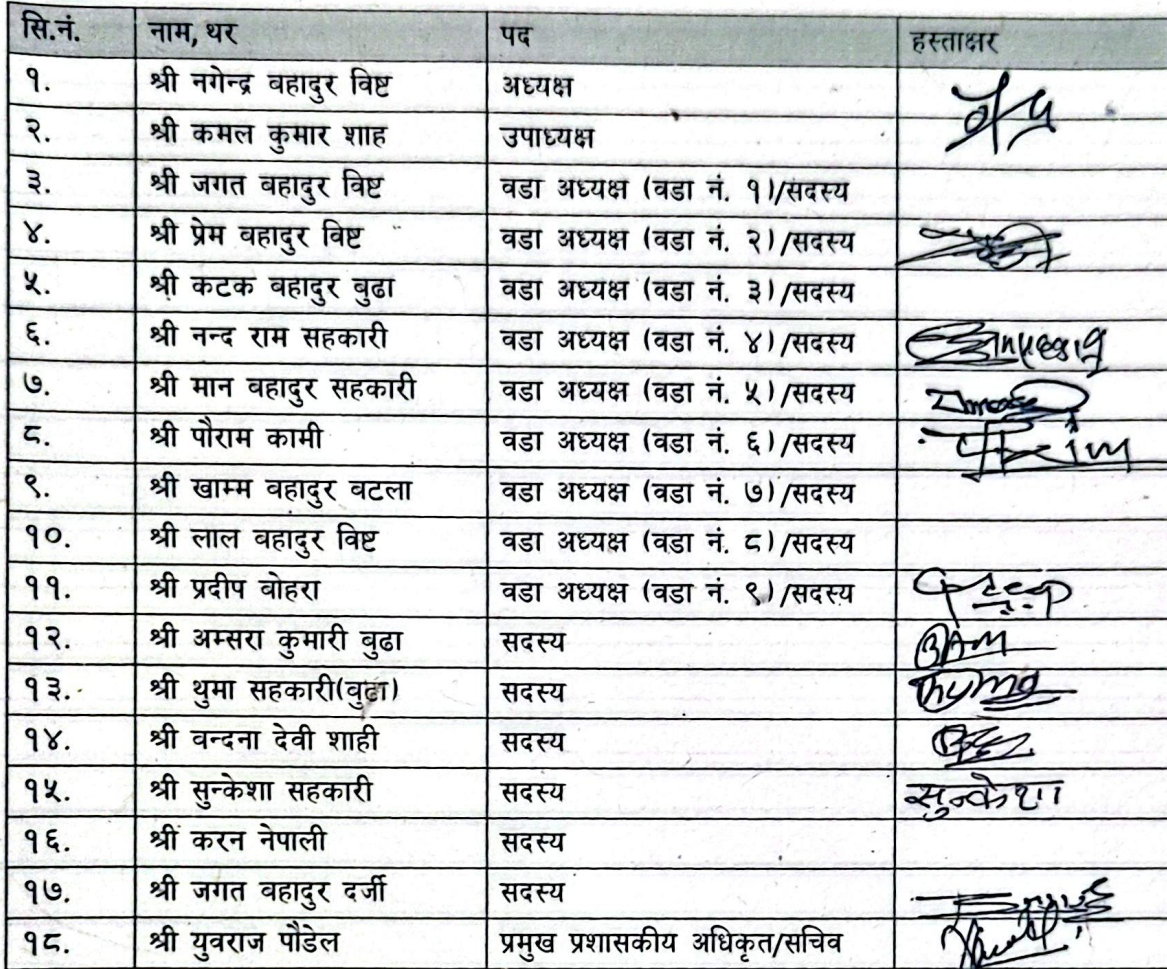 सि.नं. नाम, थर पद हस्ताक्षर
१. श्री नगेन्द्र वहादुर विष्ट अध्यक्ष
२. श्री कमल कुमार शाह उपाध्यक्ष
३. श्री जगत वहादुर विष्ट वडा अध्यक्ष (वडा नं. १)/सदस्य
४. श्री प्रेम वहादुर विष्ट वडा अध्यक्ष (वडा नं. २)/सदस्य
५. श्री कटक वहादुर बुढा वडा अध्यक्ष (वडा नं. ३)/सदस्य
६. श्री नन्द राम सहकारी वडा अध्यक्ष (वडा नं. ४)/सदस्य
७. श्री मान वहादुर सहकारी वडा अध्यक्ष (वडा नं. ५)/सदस्य
८. श्री पौराम कामी वडा अध्यक्ष (वडा नं. ६)/सदस्य
९. श्री खाम्म वहादुर वटला वडा अध्यक्ष (वडा नं. ७)/सदस्य
१०. श्री लाल वहादुर विष्ट वडा अध्यक्ष (वडा नं. ८)/सदस्य
११. श्री प्रदीप वोहरा वडा अध्यक्ष (वडा नं. ९)/सदस्य
१२. श्री अम्सरा कुमारी वुढा सदस्य BAM
१३. श्री थुमा सहकारी(वुढा) सदस्य Thuma
१४. श्री वन्दना देवी शाही सदस्य
१५. श्री सुन्केशा सहकारी सदस्य सुन्केशा
१६. श्री करन नेपाली सदस्य
१७. श्री जगत वहादुर दर्जी सदस्य
१८. श्री युवराज पौडेल प्रमुख प्रशासकीय अधिकृत/सचिव